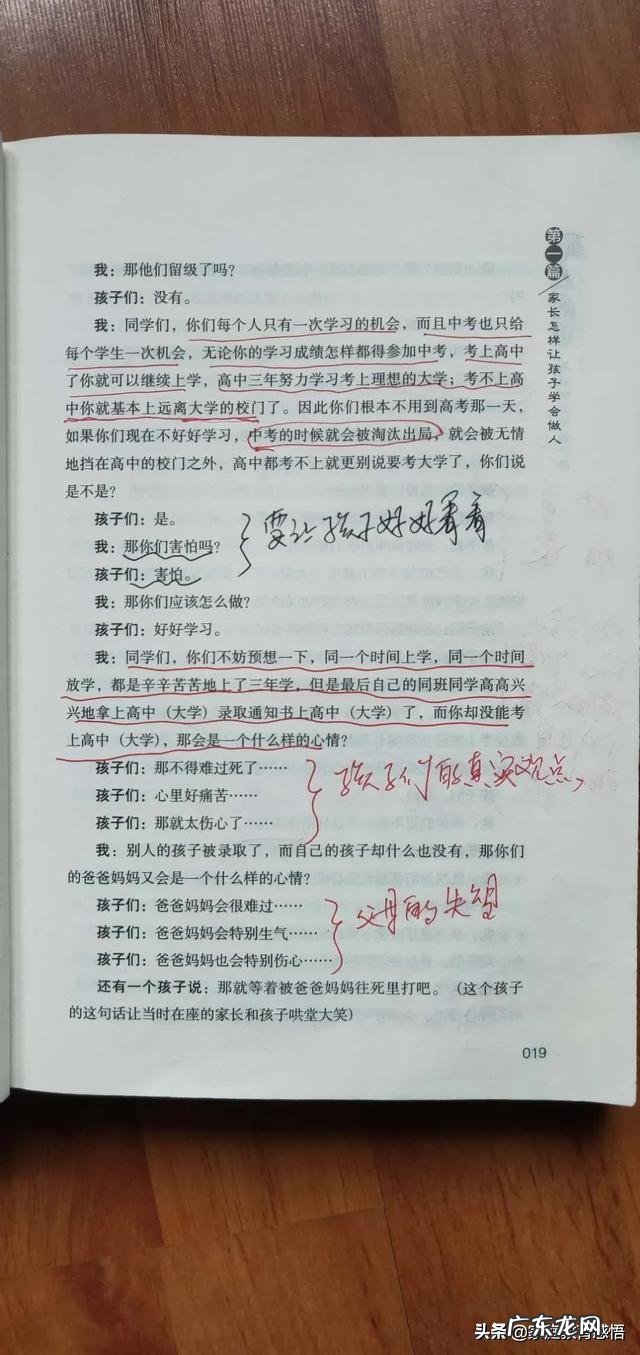 第一篇 家长怎样让孩子学会做人
我：那他们留级了吗？
孩子们：没有。
我：同学们，你们每个人只有一次学习的机会，而且中考也只给
每个学生一次机会，无论你的学习成绩怎样都得参加中考，考上高中
了你就可以继续上学，高中三年努力学习考上理想的大学；考不上高
中你就基本上远离大学的校门了。因此你们根本不用到高考那一天，
如果你们现在不好好学习，中考的时候就会被淘汰出局，就会被无情
地挡在高中的校门之外，高中都考不上就更别说要考大学了，你们说
是不是？
孩子们：是。
我：那你们害怕吗？
孩子们：害怕。
要让孩子好好看看
我：那你们应该怎么做？
孩子们：好好学习。
我：同学们，你们不妨预想一下，同一个时间上学，同一个时间
放学，都是辛辛苦苦地上了三年学，但是最后自己的同班同学高高兴
兴地拿上高中（大学）录取通知书上高中（大学）了，而你却没能考
上高中（大学），那会是一个什么样的心情？
孩子们：那不得难过死了……
孩子们：心里好痛苦……
孩子们：那就太伤心了……
孩子们的真实观点，
我：别人的孩子被录取了，而自己的孩子却什么也没有，那你们
的爸爸妈妈又会是一个什么样的心情？
孩子们：爸爸妈妈会很难过……
孩子们：爸爸妈妈会特别生气……
孩子们：爸爸妈妈也会特别伤心……
父母的失望
还有一个孩子说：那就等着被爸爸妈妈往死里打吧。（这个孩子
的这句话让当时在座的家长和孩子哄堂大笑）
019
头条 @家庭教育感悟
广东龙网